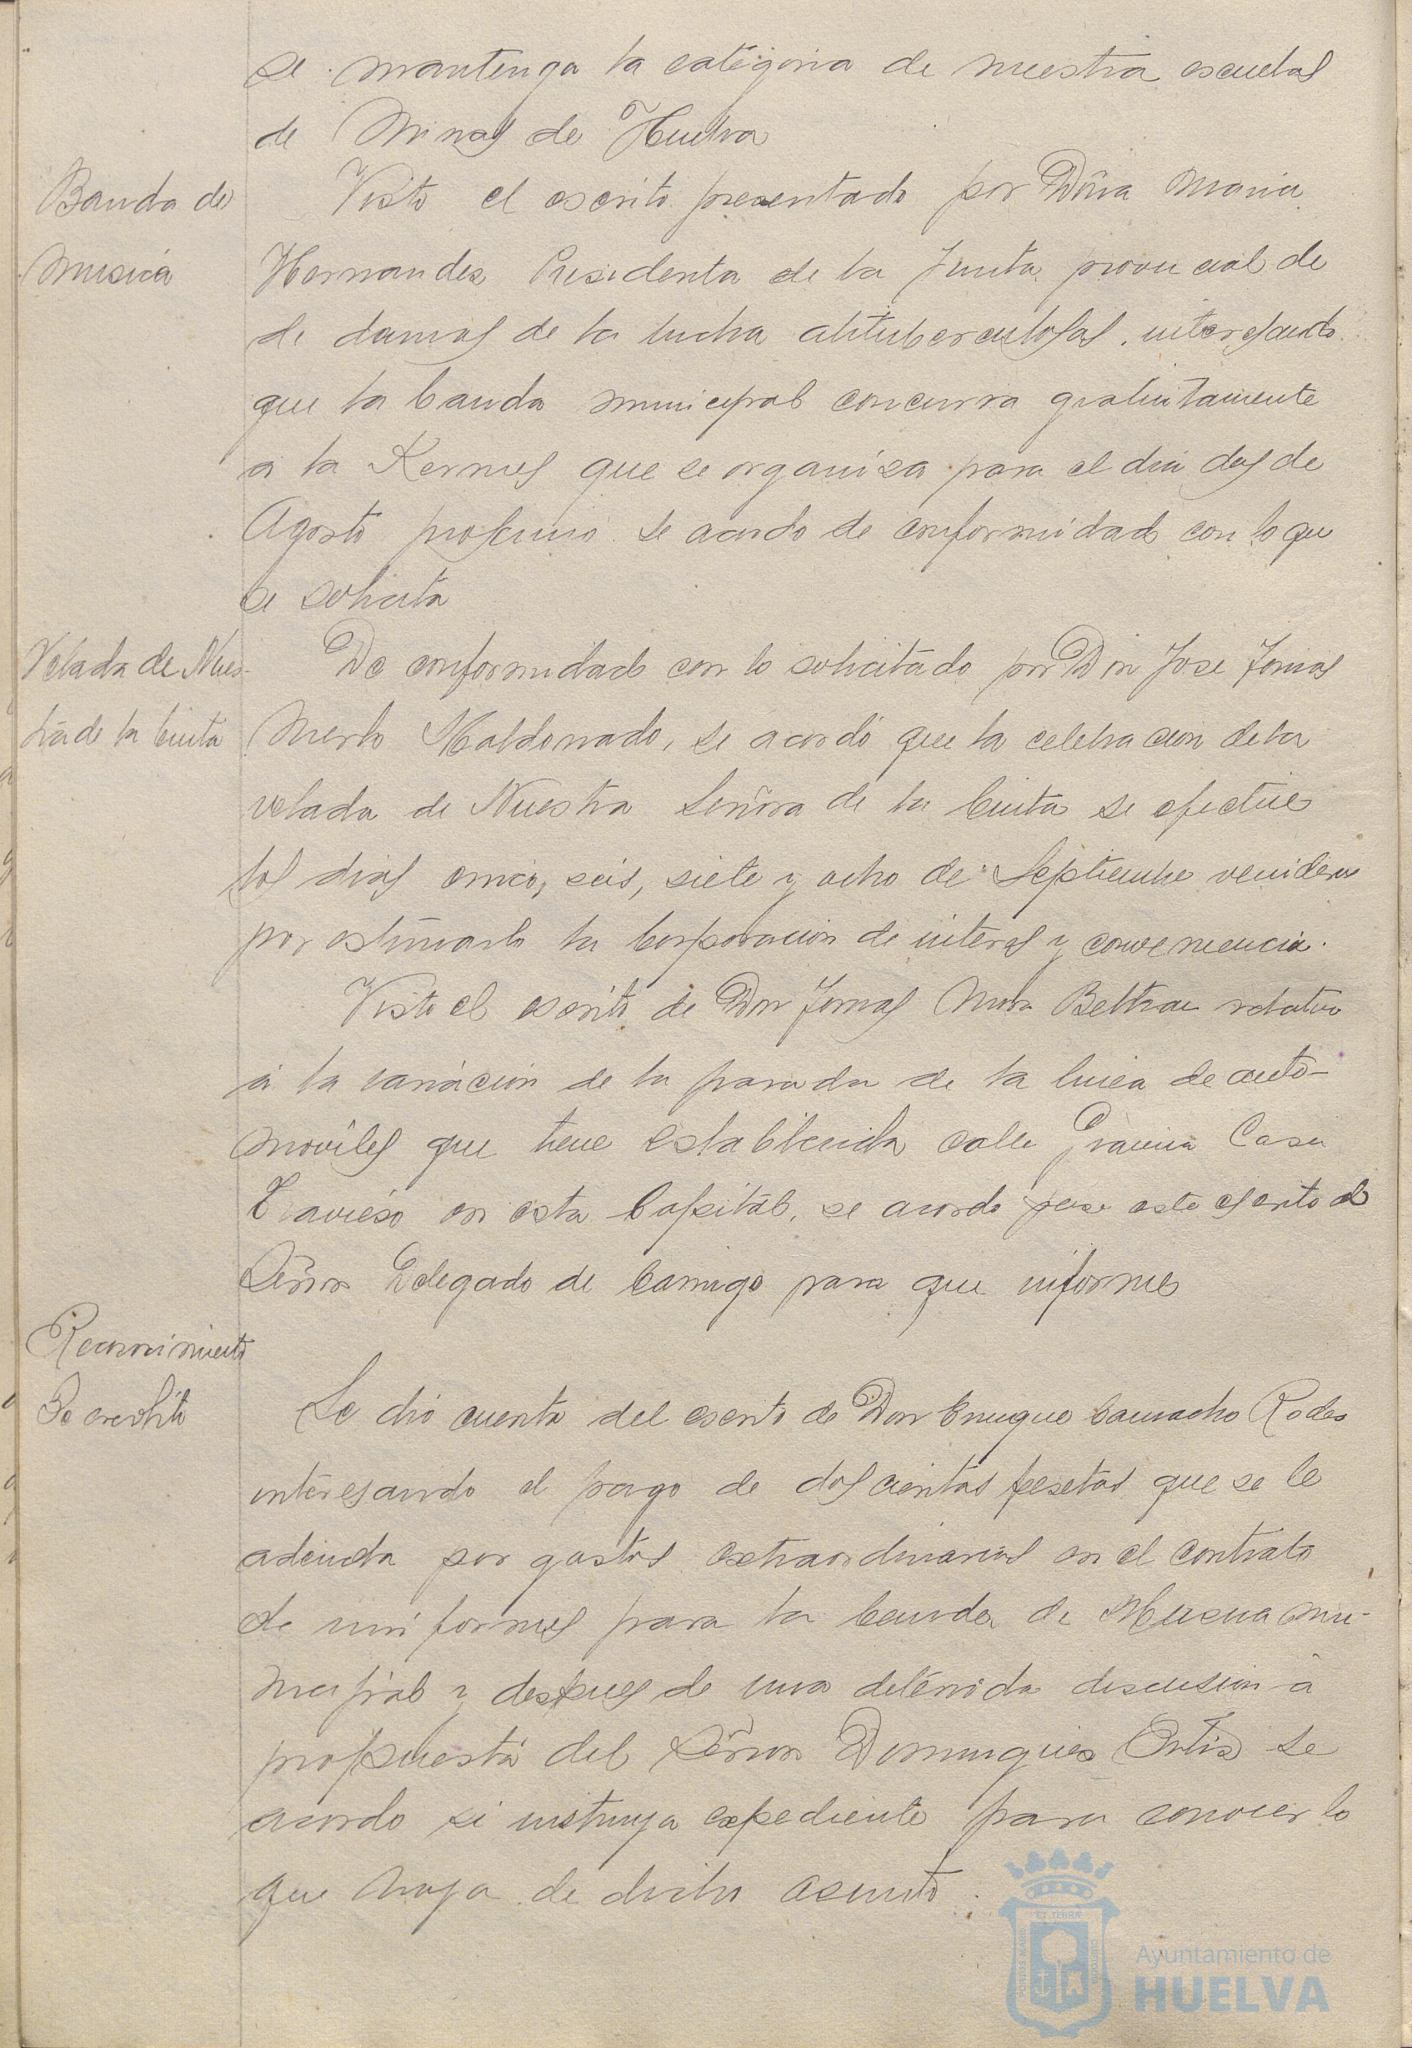 se mantenga la categoria de nuestra escuelas
de Minas de Huelva
Banda de
Musica
Visto el escrito presentado por Doña Maria
Hernandez Presidenta de la Junta provincial de
de damas de la lucha atituberculosas, interesando
que la banda municipal concurra gratuitamente
a la Kermes que se organiza para el dia dos de
Agosto proximo se acordo de conformidad con lo que
se solicita
Velada de Nues-
tra de la Cinta
De conformidad con lo solicitado por Don Jose Tomas
Merlo Maldonado, se acordó que la celebracion de la
velada de Nuestra Señora de la Cinta se efectue
los dias cinco, seis, siete y ocho de Septiembre venidero
por estimarlo la Corporacion de interes y conveniencia.
Visto el escrito de Don Tomas Mora Beltran relativo
a la variacion de la parada de la linea de auto-
moviles que tiene establecida calle Gravina Casa
Travieso en esta Capital, se acordo pase este escrito al
Señor Delegado de Camigo para que informe
Reconocimiento
De credito
Se dio cuenta del escrito de Don Enrique Camacho Rodes
interesando el pago de doscientas pesetas que se le
adeuda por gastos extraordinarios en el contrato
de uniformes para la banda de Musica mu-
nicipal y despues de una detenida discusion a
propuesta del Señor Dominguez Ortiz se
acordo se instruya expediente para conocer lo
que haya de dicho asunto.
Ayuntamiento de
HUELVA